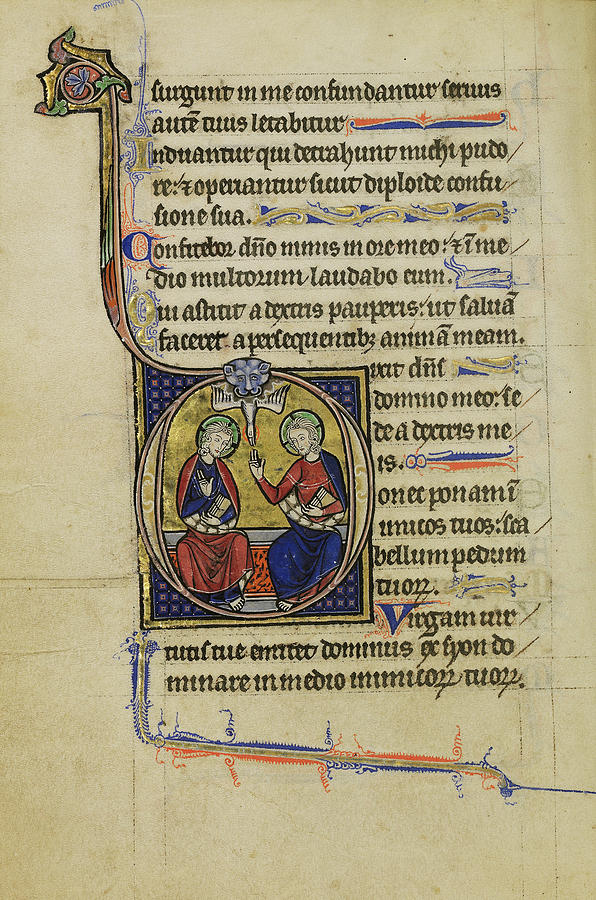 surgunt in me confundantur seruus
autē tuus letabitur
Induantur qui detrahunt michi pudo
re: ⁊ operiantur sicut diploide confu
sione sua.
Confitebor dño nimis in ore meo: ⁊ ī me
dio multorum laudabo eum.
Qui astitit a dextris pauperis: ut saluā
faceret a persequentibꝫ animā meam.
Dixit dn̄s
domino meo: se
de a dextris me
is.
Donec ponam ī
imicos tuos: sca
bellum pedum
tuoꝝ.
Virgam uir
tutis tue emittet dominus ex syon do
minare in medio inimicoꝝ tuoꝝ.